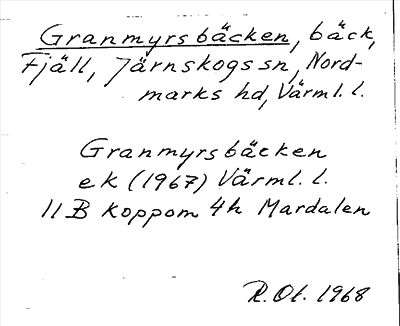 Granmyrsbäcken, bäck,
Fjäll, Järnskogs sn, Nord-
marks hd, Värml. l.
Granmyrsbäcken
ek (1967) Värml. l.
11 B Koppom 4h Mardalen
R. Ot. 1968